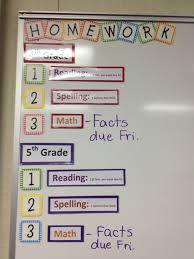 HOMEWORK
Grade
1 Reading:
2 Spelling:
3 Math - Facts
due Fri.
5th Grade
1 Reading:
2 Spelling:
3 Math - Facts
due Fri.